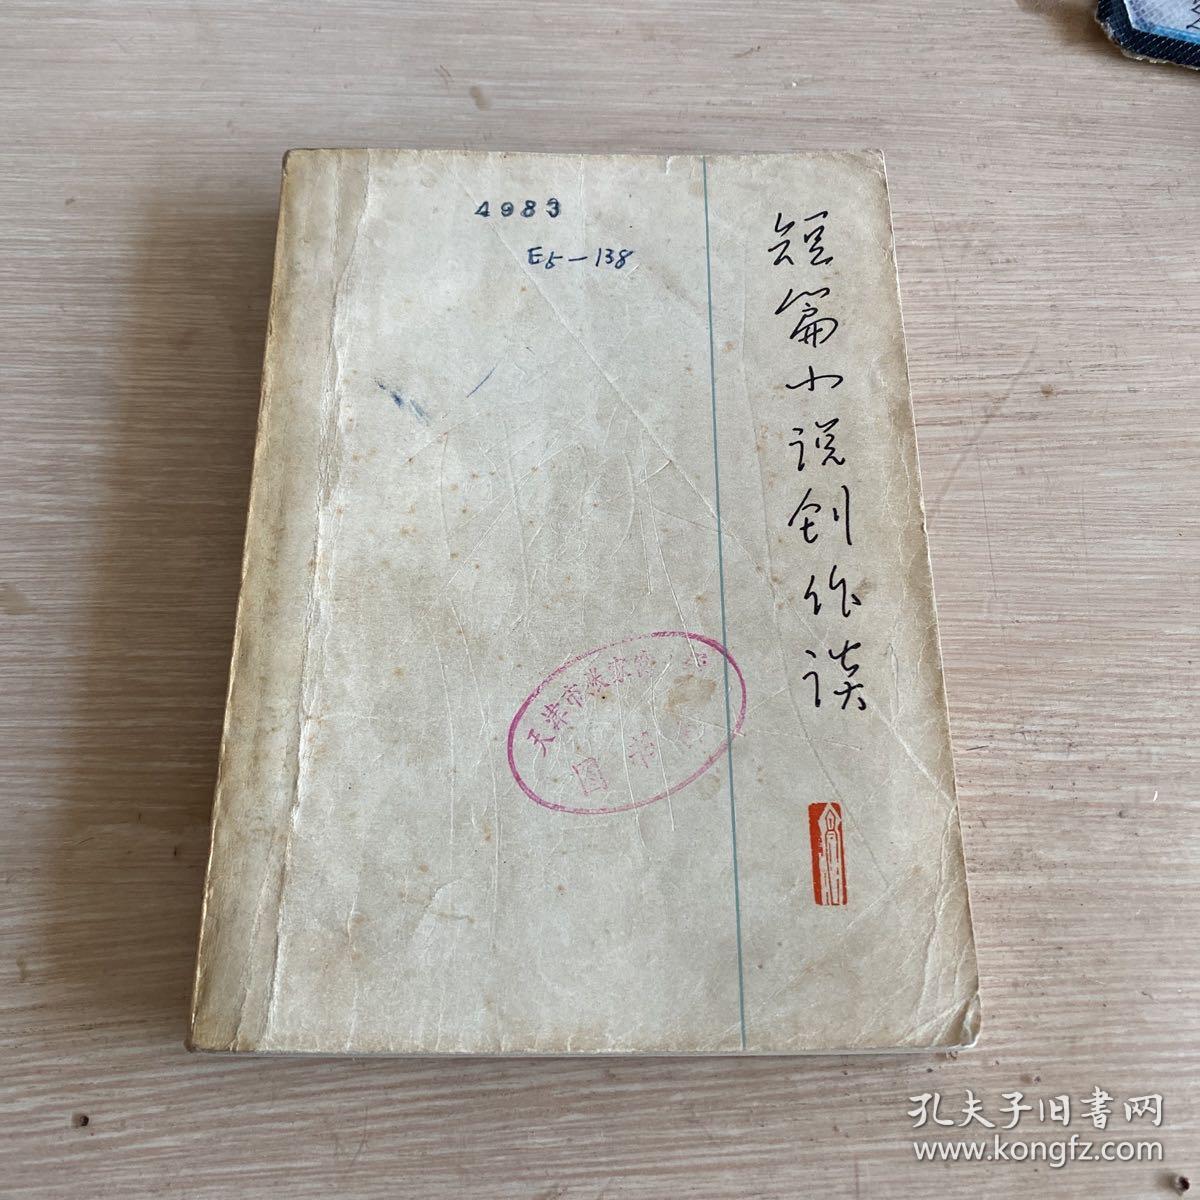 4983
E5-138
短篇小说创作谈
天津市张家窝
图书
孔夫子旧书网
www.kongfz.com